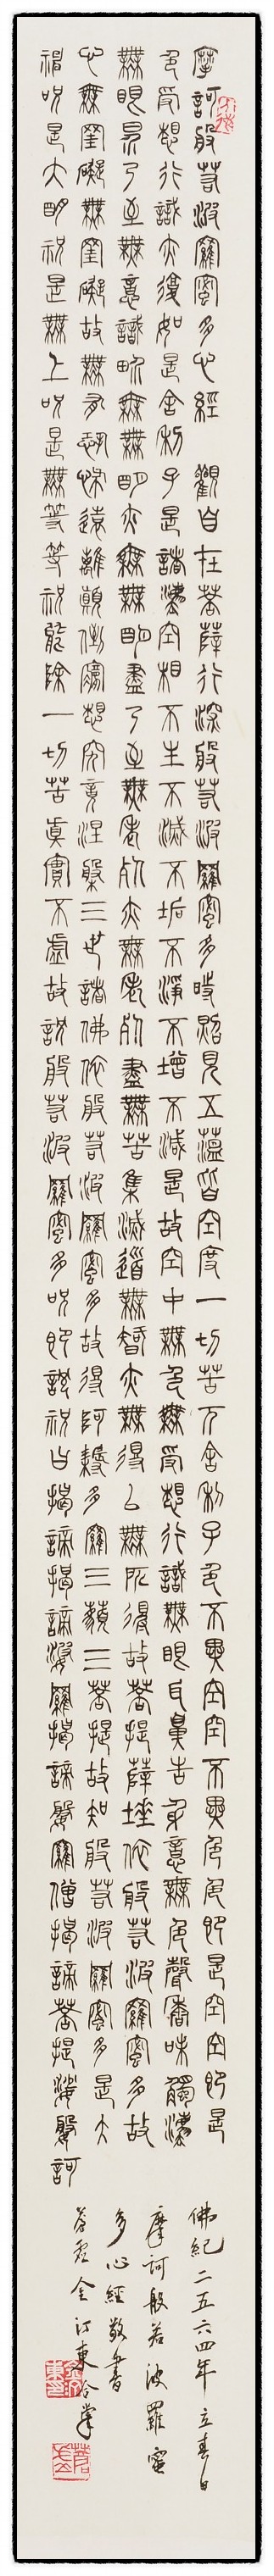 摩訶般若波羅蜜多心經 觀自在菩薩行深般若波羅蜜多時照見五蘊皆空度一切苦厄舍利子色不異空空不異色色即是空空即是
色受想行識亦復如是舍利子是諸法空相不生不滅不垢不淨不增不減是故空中無色無受想行識無眼耳鼻舌身意無色聲香味觸法
無眼界乃至無意識界無無明亦無無明盡乃至無老死亦無老死盡無苦集滅道無智亦無得以無所得故菩提薩埵依般若波羅蜜多故
心無罣礙無罣礙故無有恐怖遠離顛倒夢想究竟涅槃三世諸佛依般若波羅蜜多故得阿耨多羅三藐三菩提故知般若波羅蜜多是大
神呪是大明呪是無上呪是無等等呪能除一切苦眞實不虛故說般若波羅蜜多呪即說呪曰揭諦揭諦波羅揭諦波羅僧揭諦菩提娑婆訶
佛紀二五六四年立春日
摩訶般若波羅蜜
多心經敬書
金江東合掌